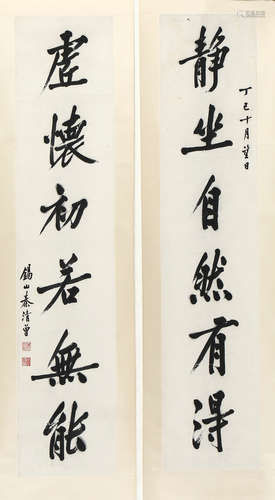 静坐自然有得
丁巳十月望日
虚懷初若無能
錫山秦清曾